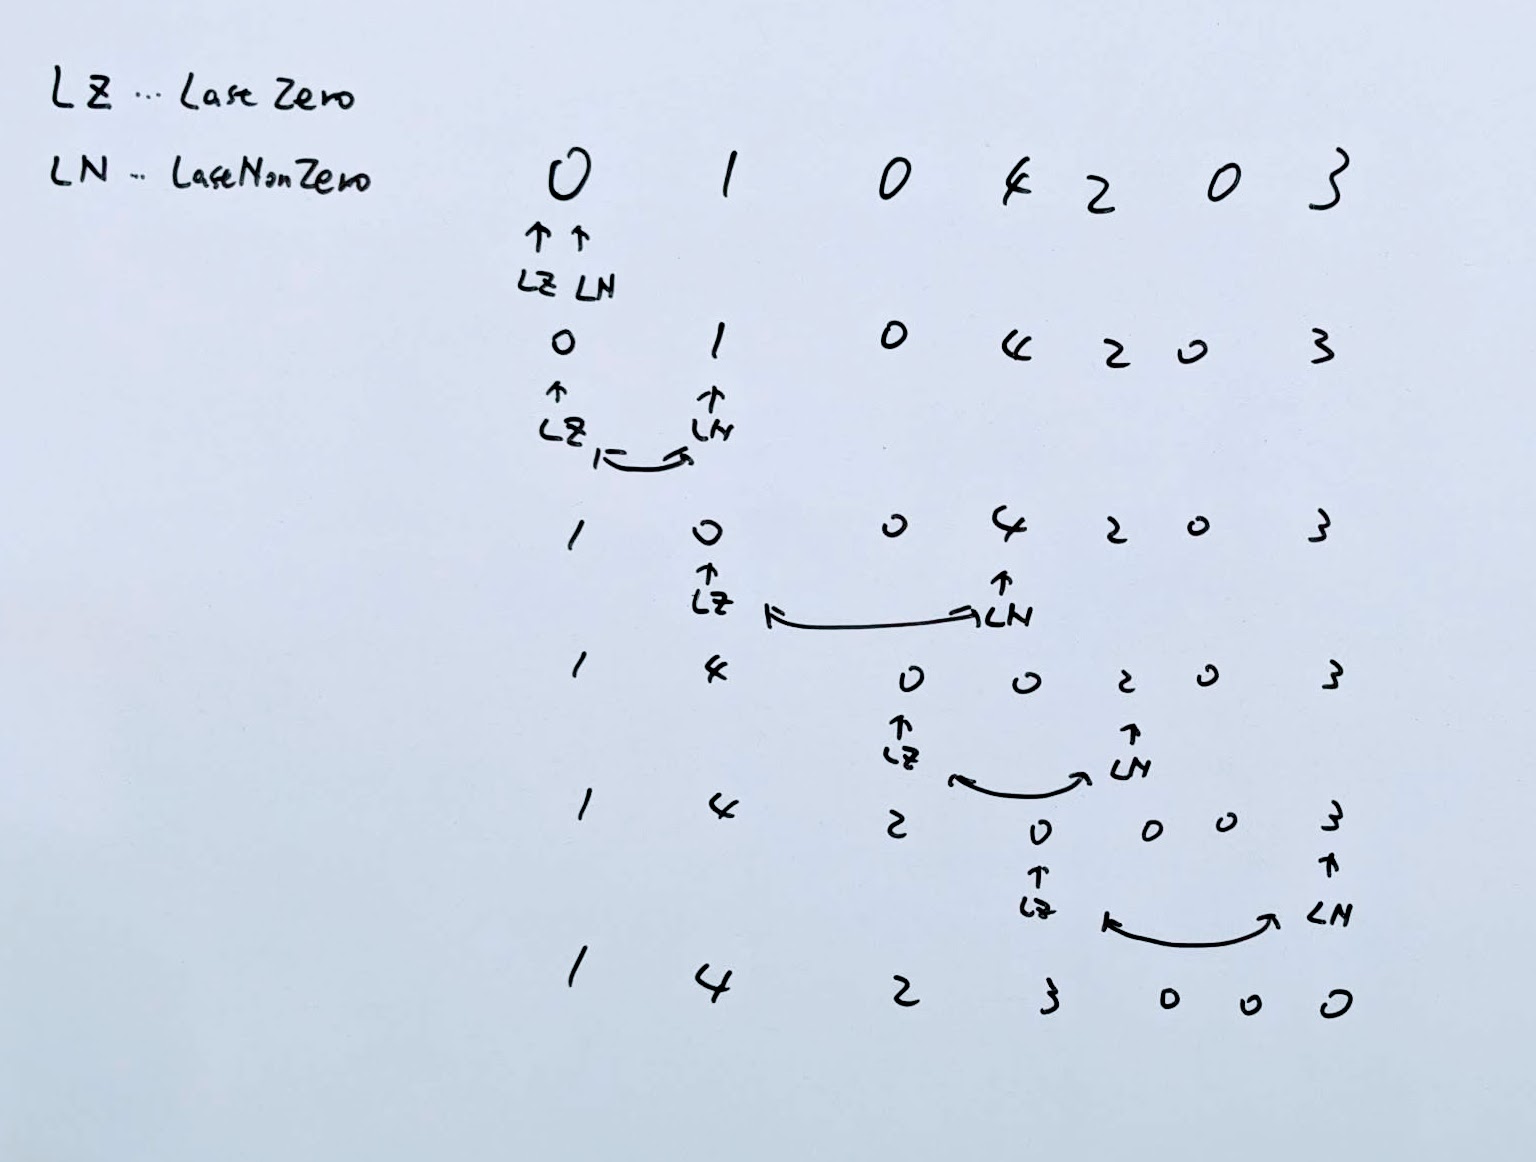 LZ ... Last Zero
LN .. LastNonZero
0 1 0 4 2 0 3
↑ ↑
LZ LN
0 1 0 4 2 0 3
↑ ↑
LZ LN
1 0 0 4 2 0 3
↑ ↑
LZ LN
1 4 0 0 2 0 3
↑ ↑
LZ LN
1 4 2 0 0 0 3
↑ ↑
LZ LN
1 4 2 3 0 0 0